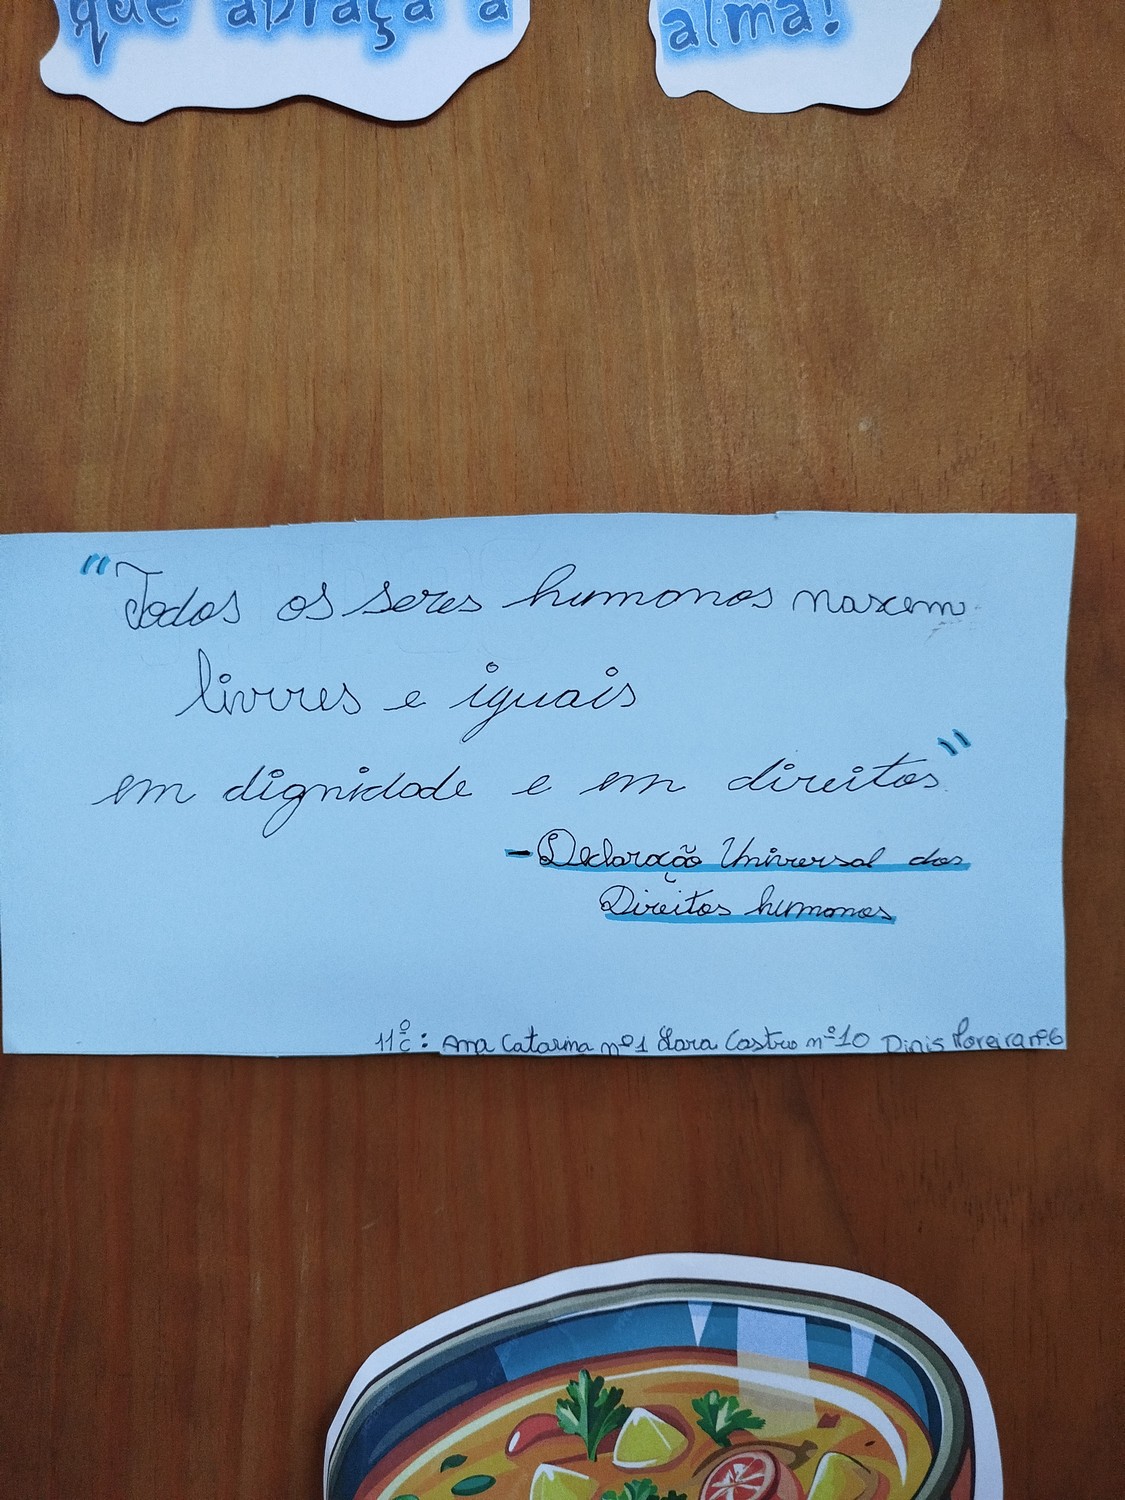 que abraça a alma!
"Todos os seres humanos nascem
livres e iguais
em dignidade e em direitos"
- Declaração Universal dos
Direitos humanos
11ºC: Ana Catarina nº1 Lara Castro nº10 Dinis Moreira nº6